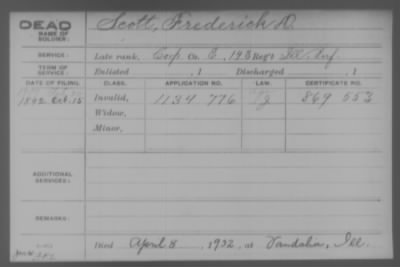 DEAD
NAME OF SOLDIER: Scott, Frederick D.
SERVICE: Late rank, Corp. Co. E, 143 Reg't Ill. Inf.
TERM OF SERVICE: Enlisted , 1 Discharged , 1
DATE OF FILING. CLASS. APPLICATION NO. LAW. CERTIFICATE NO.
1892 Oct. 15 Invalid, 1134 776 869 553
Widow,
Minor,
ADDITIONAL SERVICES:
REMARKS:
Died April 8, 1932, at Vandalia, Ill.